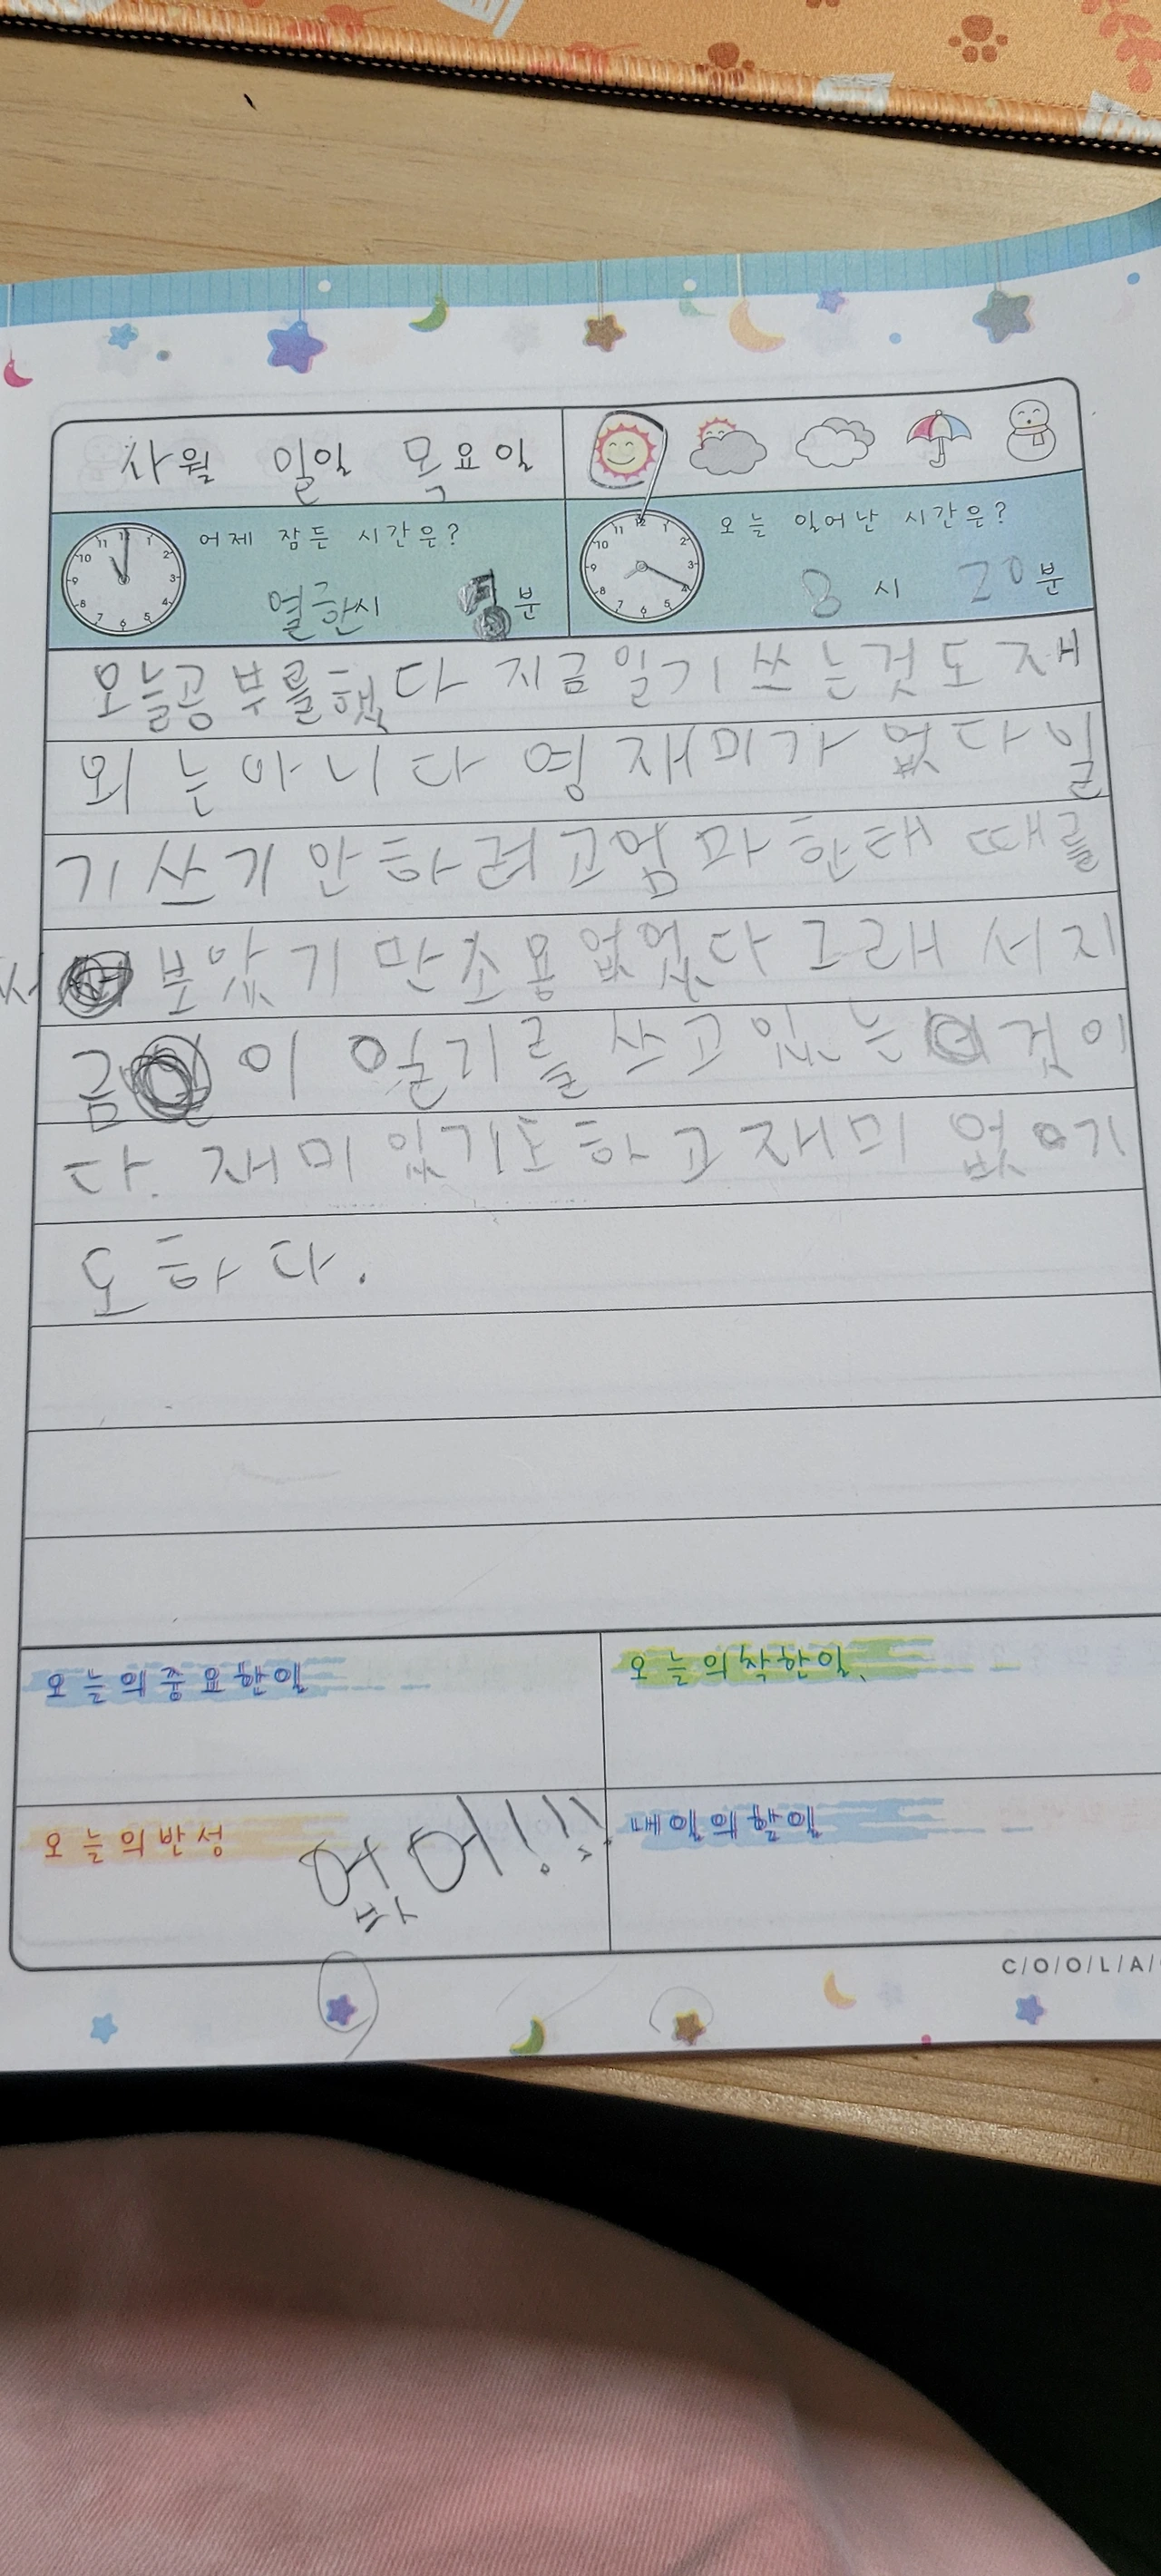 사월 일일 목요일
11 12 1 10 2 9 3 8 4 7 6 5
어제 잠든 시간은?
열한시 분
11 12 1 10 2 9 3 8 4 7 6 5
오늘 일어난 시간은?
8시 20분
오늘공부를했다 지금일기쓰는것도재
외는아니다 영재미가없다일
기쓰기안하려고엄마한태때를
써 부았기만소용없었다그래서지
금 이일기를쓰고있는 것이
다. 재미있기도하고재미없기
도하다.
오늘의중요한일
오늘의착한일
오늘의반성
없어!!!
내일의할일
C/O/O/L/A/